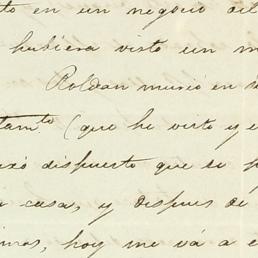 to en un negocio
hubiera visto un
Roldan murió en
tamto (que he visto y
dispuesto que se
casa, y despues de
hoy me vá a